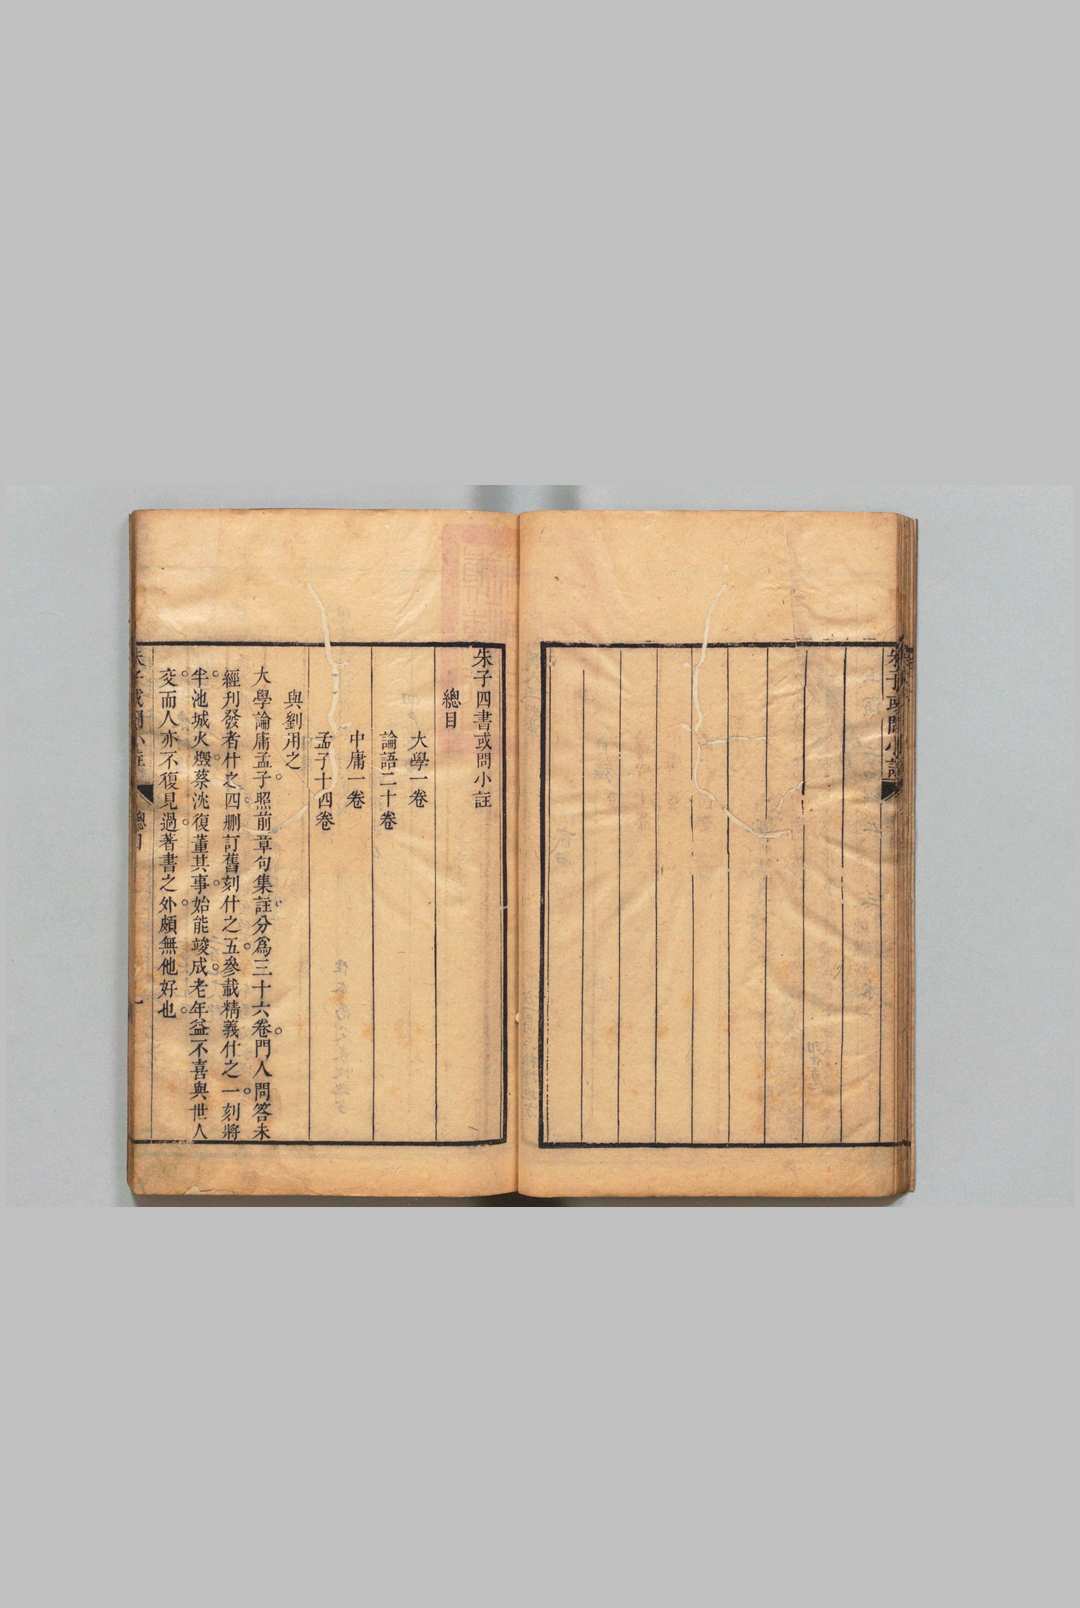 朱子或問小註
朱子四書或問小註
總目
大學一卷
論語二十卷
中庸一卷
孟子十四卷
與劉用之
大學論庸孟子。照前章句集註。分爲三十六卷。門人問答未
經刊發者什之四。刪訂舊刻什之五。參載精義什之一。刻將
半。池城火燬。蔡沈復董其事。始能竣成。老年益不喜與世人
交。而人亦不復見過。著書之外。頗無他好也。
朱子或問小註
總目
一